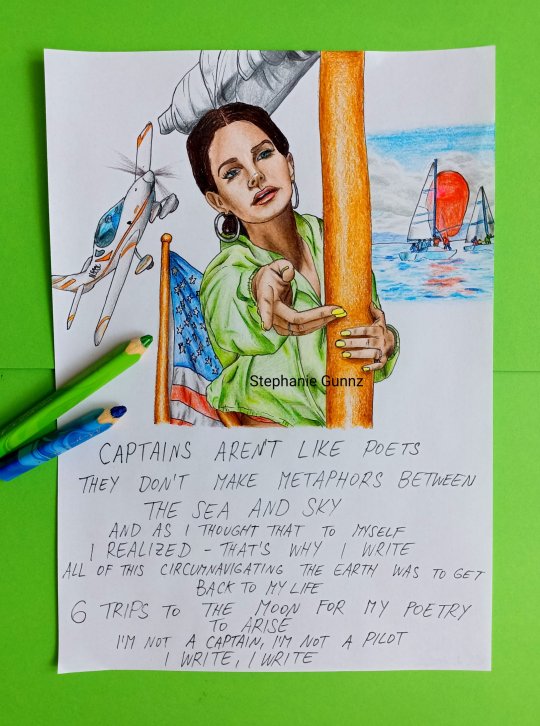 Stephanie Gunnz
CAPTAINS AREN'T LIKE POETS
THEY DON'T MAKE METAPHORS BETWEEN
THE SEA AND SKY
AND AS I THOUGHT THAT TO MYSELF
I REALIZED - THAT'S WHY I WRITE
ALL OF THIS CIRCUMNAVIGATING THE EARTH WAS TO GET
BACK TO MY LIFE
6 TRIPS TO THE MOON FOR MY POETRY
TO ARISE
I'M NOT A CAPTAIN, I'M NOT A PILOT
I WRITE, I WRITE